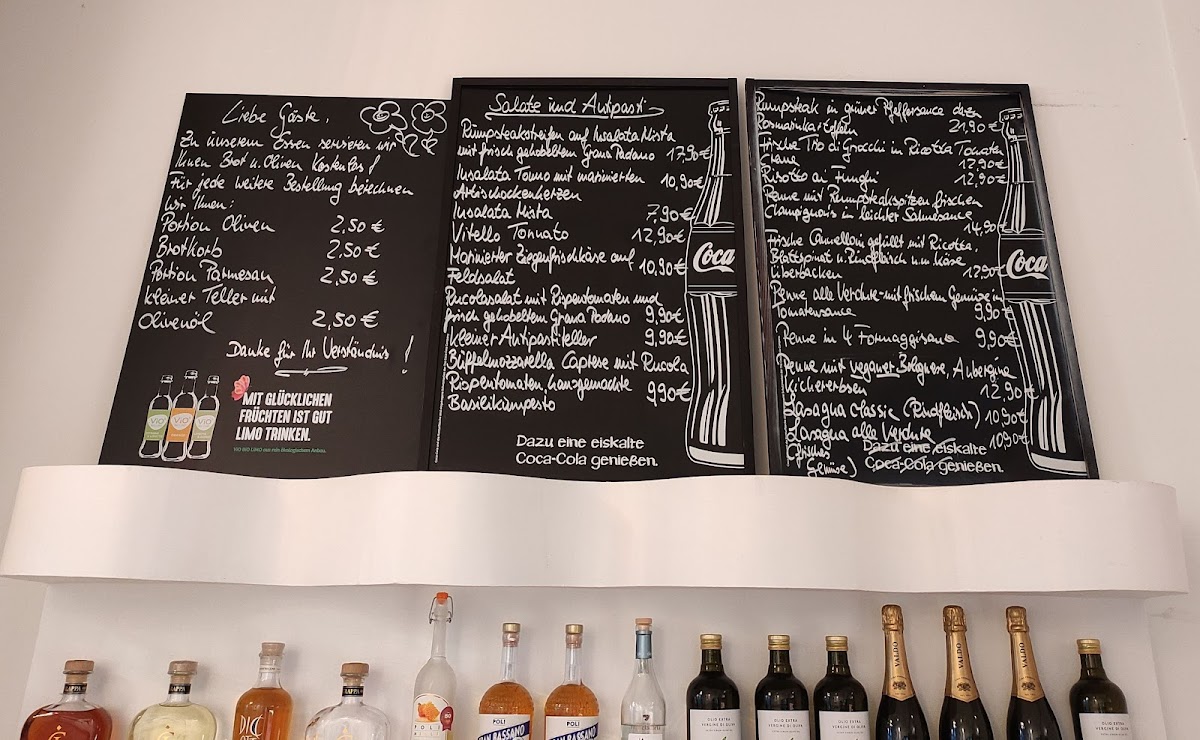 Liebe Gäste,
Zu unserem Essen servieren wir
Ihnen Brot u. Oliven kostenlos!
Für jede weitere Bestellung berechnen
wir Ihnen:
Portion Oliven 2,50 €
Brotkorb 2,50 €
Portion Parmesan 2,50 €
kleiner Teller mit
Olivenöl 2,50 €
Danke für Ihr Verständnis!
ViO ViO ViO
MIT GLÜCKLICHEN
FRÜCHTEN IST GUT
LIMO TRINKEN.
Salate und Antipasti
Rumpsteakstreifen auf Insalata Mista
mit frisch gehobeltem Grana Padano 17,90€
Insalata Tonno mit marinierten 10,90€
Artischockenherzen
Insalata Mista 7,90€
Vitello Tonnato 12,90€
Marinierter Ziegenfrischkäse auf 10,90€
Feldsalat
Rucolasalat mit Rispentomaten und
frisch gehobeltem Grana Padano 9,90€
kleiner Antipastiteller 9,90€
Büffelmozzarella Caprese mit Rucola
Rispentomaten, hausgemachte 9,90€
Basilikumpesto
Coca
Dazu eine eiskalte
Coca-Cola genießen.
Rumpsteak in grüner Pfeffersauce dazu
Rosmarinkartoffeln 21,90€
Frische Trio di Gnocchi in Ricotta Tomaten
Creme 12,90€
Risotto ai Funghi 12,90€
Penne mit Rumpsteakspitzen frischen
Champignons in leichter Sahnesauce
14,90€
Frische Cannelloni gefüllt mit Ricotta,
Blattspinat u. Rindfleisch u. m. Käse
überbacken 12,90€
Penne alle Verdure - mit frischem Gemüse in
Tomatensauce 9,90€
Penne in 4 Formaggisauce 9,90€
Penne mit veganer Bolognese, Aubergine
Kichererbsen 12,90€
Lasagna classic (Rindfleisch) 10,90€
Lasagna alle Verdure 10,90€
(frisches
Gemüse)
Coca
Dazu eine eiskalte
Coca-Cola genießen.
GRAPPA
POLI
POLI
BASSANO
POLI
BASSANO
OLIO EXTRA
VERGINE DI OLIVA
OLIO EXTRA
VERGINE DI OLIVA
OLIO EXTRA
VERGINE DI OLIVA
VALDO
VALDO
VALDO
OLIO EXTRA
VERGINE DI OLIVA